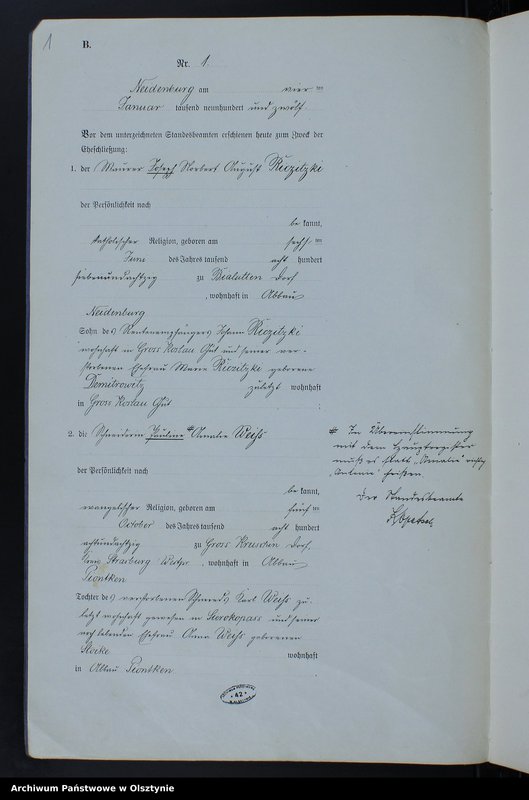 1
B.
Nr. 1
Neidenburg am vier ten
Januar tausend neunhundert und zwölf
Vor dem unterzeichneten Standesbeamten erschienen heute zum Zweck der
Eheschließung:
1. der Maurer Joseph Norbert August Rieczitzki
der Persönlichkeit nach
be kannt,
katholischer Religion, geboren am sechs ten
Juni des Jahres tausend acht hundert
siebenundachtzig zu Bialutten Dorf
, wohnhaft in Abbau
Neidenburg
Sohn des Rentenempfängers Johann
wohnhaft in Gross Koslau Gut und seiner ver-
storbenen Ehefrau Marie geborene
Demitrowitz zuletzt wohnhaft
in Gross Koslau Gut
2. die Schneiderin Pauline # Amalie Weiß
der Persönlichkeit nach
be kannt,
evangelischer Religion, geboren am fünf ten
October des Jahres tausend acht hundert
achtundachtzig zu Gross Kruschin Dorf,
Kreis Strasburg Westpr. , wohnhaft in Abbau
Piontken
Tochter des verstorbenen Schmieds Karl Weiß zu-
letzt wohnhaft gewesen in Sierokopass und seiner
noch lebenden Ehefrau Anna Weiß geborenen
wohnhaft
in Abbau Piontken
# In Übereinstimmung
mit dem Hauptregister
muß es statt "Amalie" richtig
heißen.
Der Standesbeamte
42
Archiwum Państwowe w Olsztynie